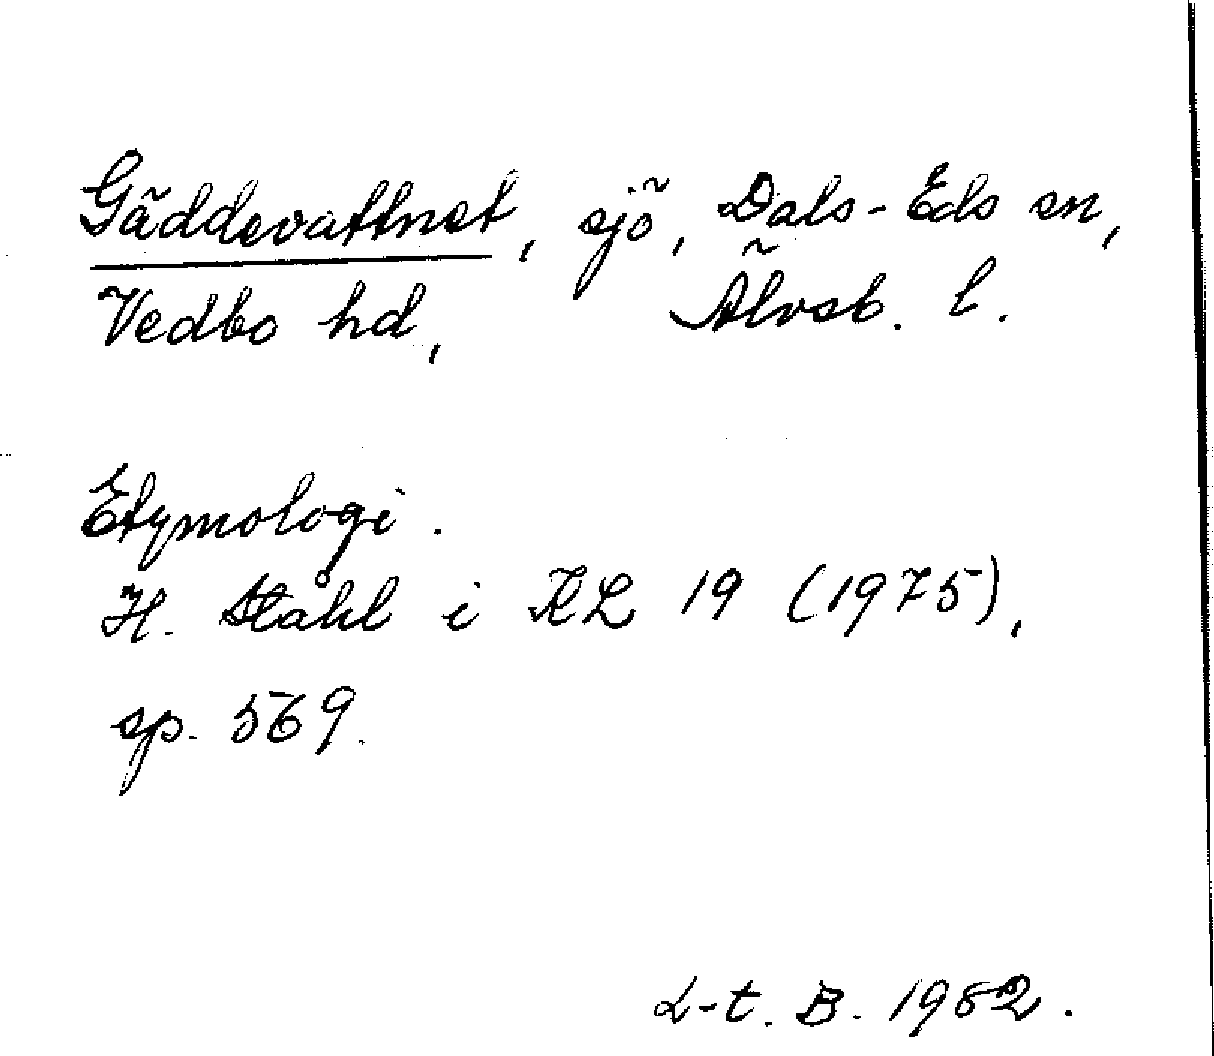 Gäddevattnet, sjö, Dals-Eds sn,
Vedbo hd, Älvsb. l.
Etymologi.
H. Ståhl i KL 19 (1975),
sp. 569.
L-t. B. 1982.